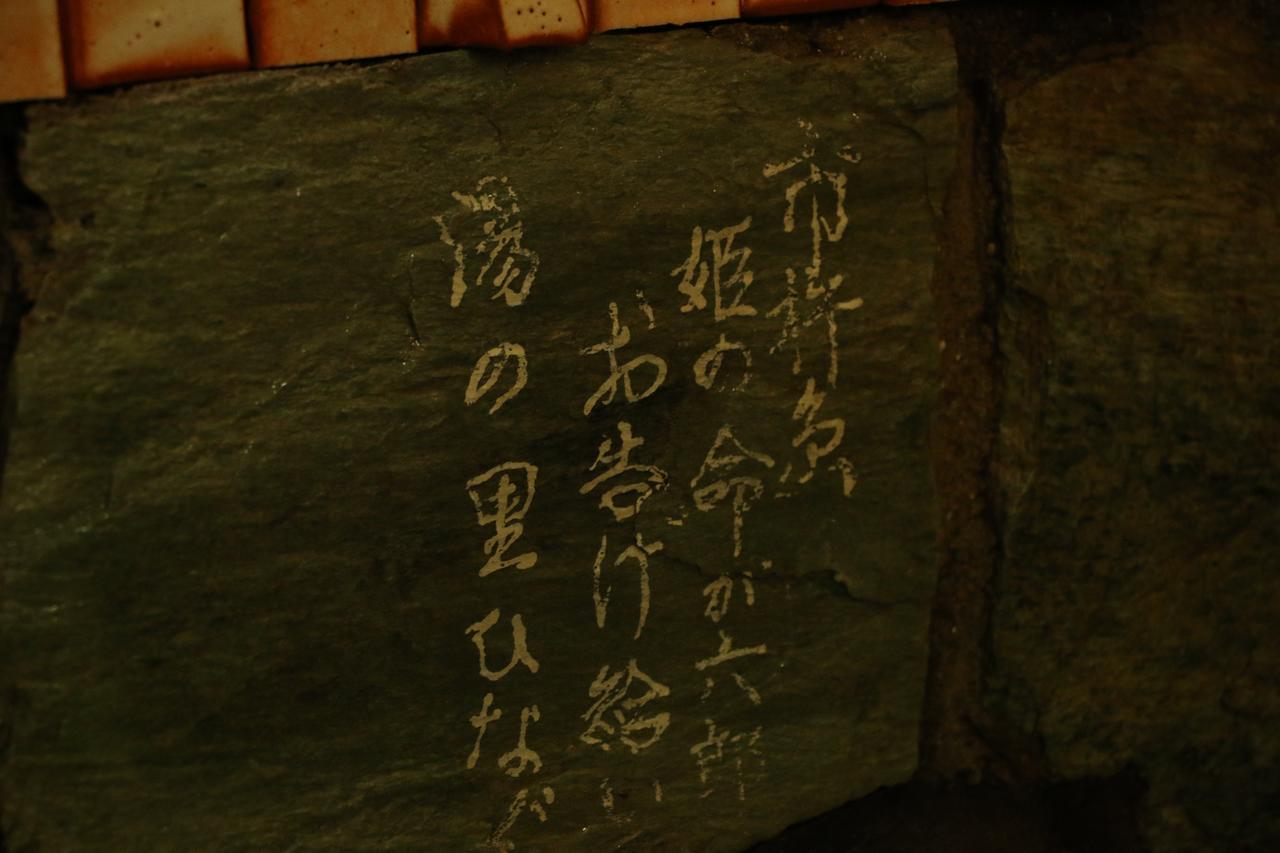 市杵島
姫の命が六郎
お告げ給い
湯の里ひなぶ